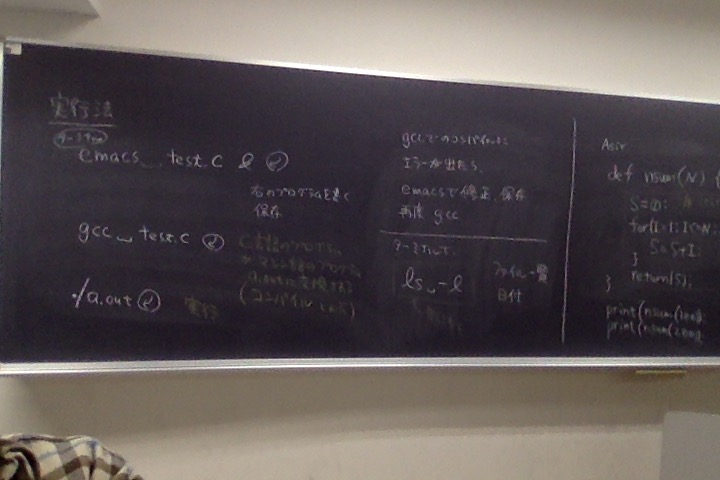 実行法
ターミナル
emacs␣test.c & ⓔ
右のプログラムを書く
保存
gcc␣test.c ⓔ
C言語のプログラム
a.outに変換する
(コンパイルする)
./a.out ⓔ 実行
gccでのコンパイル
エラーが出たら
emacsで修正、保存
再度 gcc
ターミナルで
ls␣-l
ファイル一覧
日付
Asir
def nsum(N) {
S=0;
for(I=1; I<=N;
S=S+I;
}
return(S);
}
print(nsum(
print(nsum(